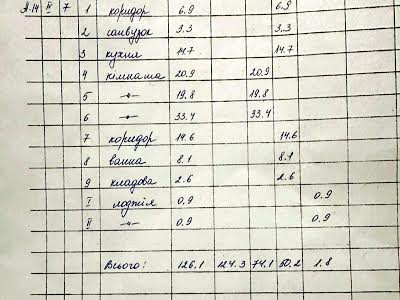 А-14 II 7 1 коридор 6.9 6.9
2 санвузол 3.3 3.3
3 кухня 14.7 14.7
4 кімната 20.9 20.9
5 -"- 19.8 19.8
6 -"- 33.4 33.4
7 коридор 14.6 14.6
8 ванна 8.1 8.1
9 кладова 2.6 2.6
I лоджія 0.9 0.9
II -"- 0.9 0.9
Всього: 126.1 124.3 74.1 50.2 1.8